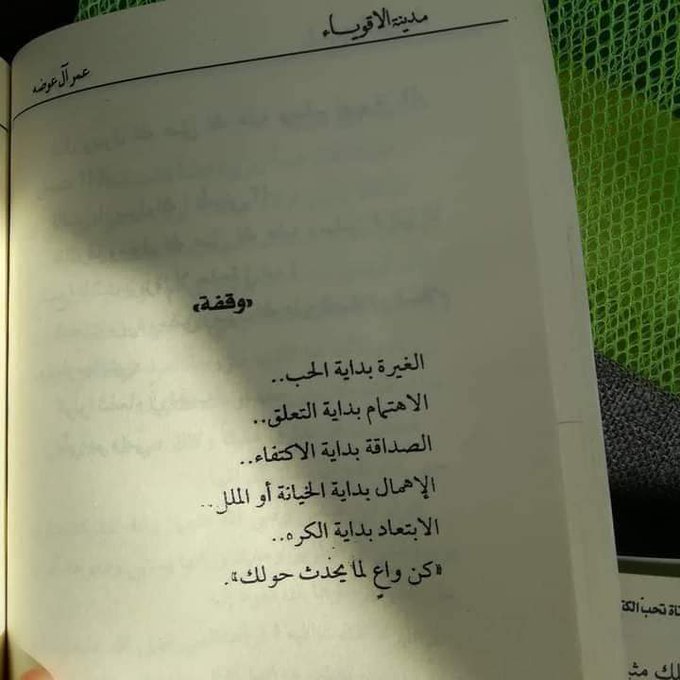 مدينة الاقوياء
عمر آل عوضه
«وقفة»
الغيرة بداية الحب..
الاهتمام بداية التعلق..
الصداقة بداية الاكتفاء..
الإهمال بداية الخيانة أو الملل..
الابتعاد بداية الكره..
«كن واعٍ لما يحدث حولك».
تحب
لك